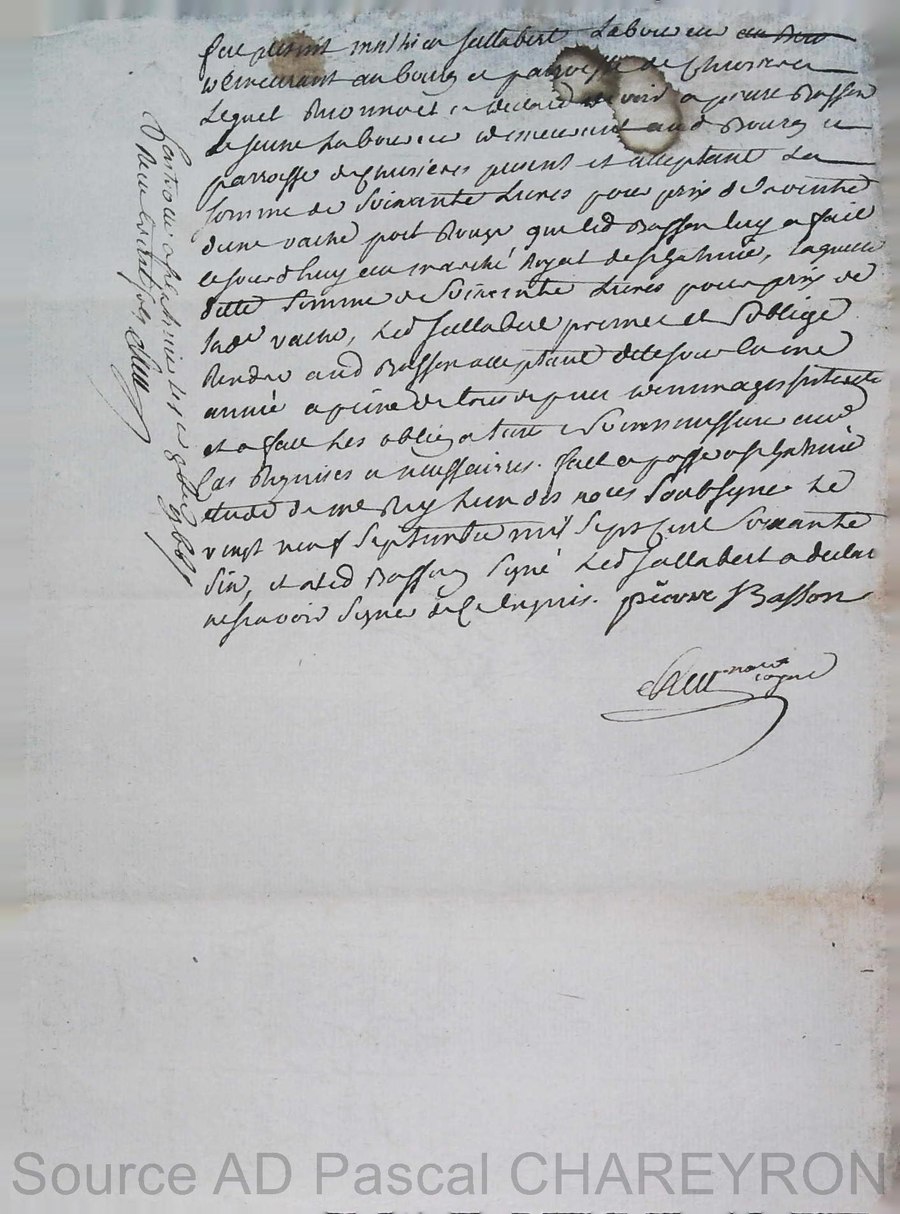 fut présent mathieu Jallabert Laboureur
demeurant au bourg et parroisse de
Lequel Reconnoit et declare devoir a pierre Basson
Le jeune Laboureur demeurant aud Bourg et
parroisse de presant et acceptant La
somme de Soixante Livres pour prix de vente
d'une vache poil Rouge que led Basson luy a fait
cejourdhuy au marché Royal de , laquelle
ditte Somme de Soixante Livres pour prix de
lade vache, Led Jallabert promet et S'oblige
Rendre aud Basson acceptant dicy
année a peine de tous depens dommages Interets
et a fait Les obligations et Soumissions
Cas Requises et necessaires. fait et passé
etude de me des notes Soubsigné Le
vingt neuf Septembre mil Sept cent Soixante
Six, et a led Basson Signé Led Jallabert a declaré
ne sçavoir Signer de ce Enquis. pierre Basson
notre
royal
Controllé
Recu
Source AD Pascal CHAREYRON